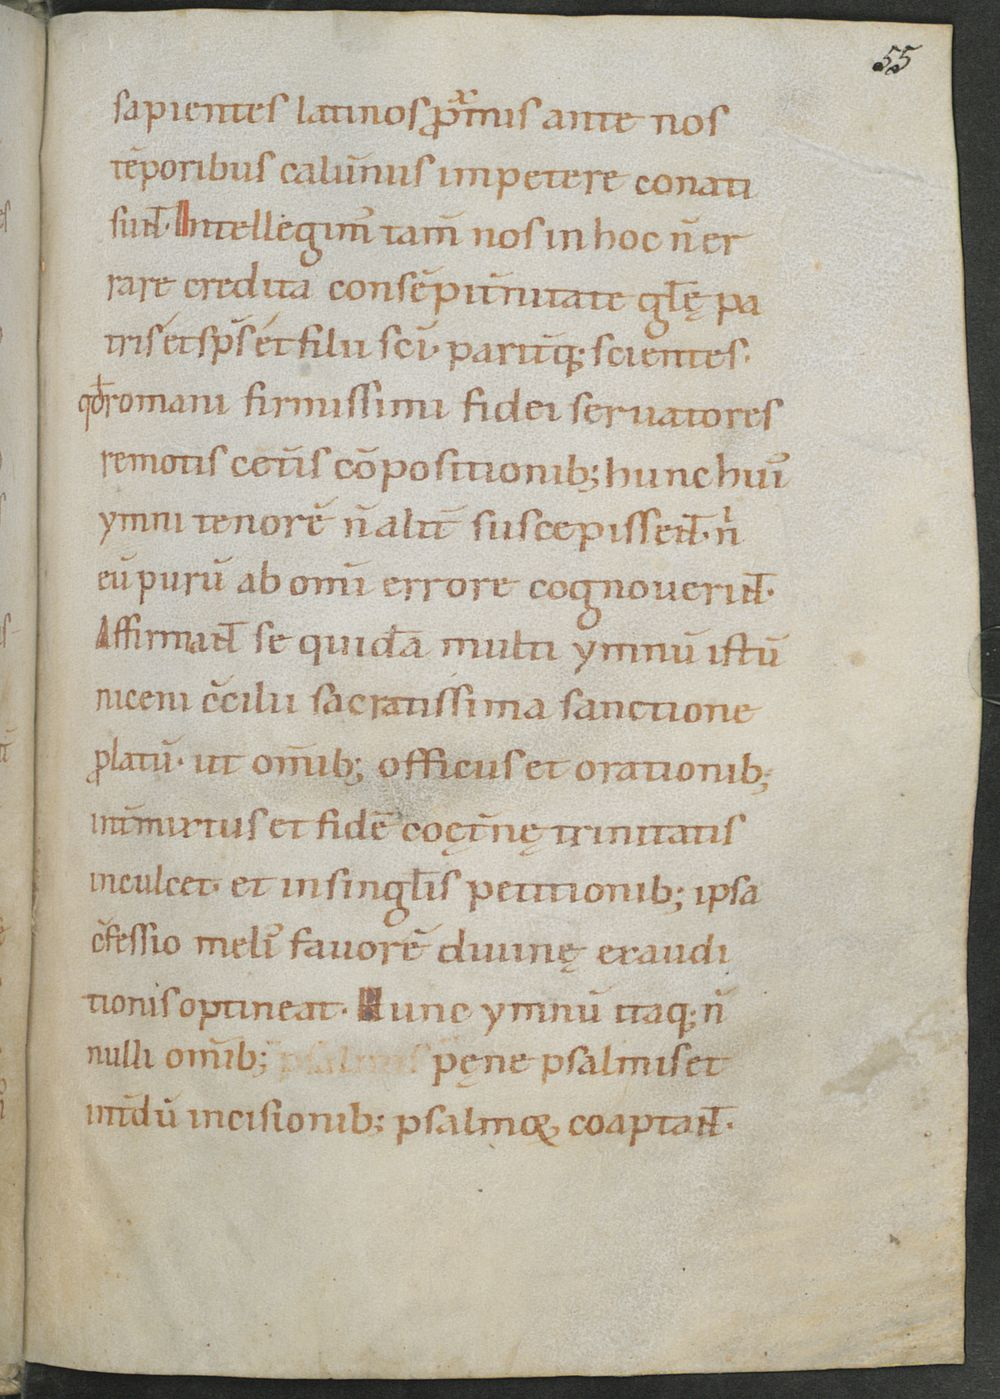 55
sapientes latinos ꝓx̄imis ante nos
tēporibus calūniis impetere conati
sun̄t. Intellegim᷒ tam̄ nos in hoc n̄ er
rare credita consēpit̄nitate gl̄ę pa
tris et sp̄s et filii sc̄i. parit̄q; scientes.
qd̄ romani firmissimi fidei seruatores
remotis cet̄is cōpositionib; hunc hui᷒
ymni tenorē n̄ alit̄ suscepissen̄t. nͥ
eū purū ab omī errore cognouerin̄t.
Affirman̄t se quidā multi ymnū istū
niceni c̄cilii sacratissima sanctione
ꝓlatū. ut om̄ib; officiis et orationib;
int̄mixtus et fidē coęt̄nę trinitatis
inculcet. et in singl̄is petitionib; ipsa
c̄fessio meli᷒ fauorē diuinę exaudi
tionis optineat. Hunc ymnū itaq; n̄
nulli om̄ib; psalmis pęne psalmis et
int̄dū incisionib; psalmoꝝ coaptan̄t.